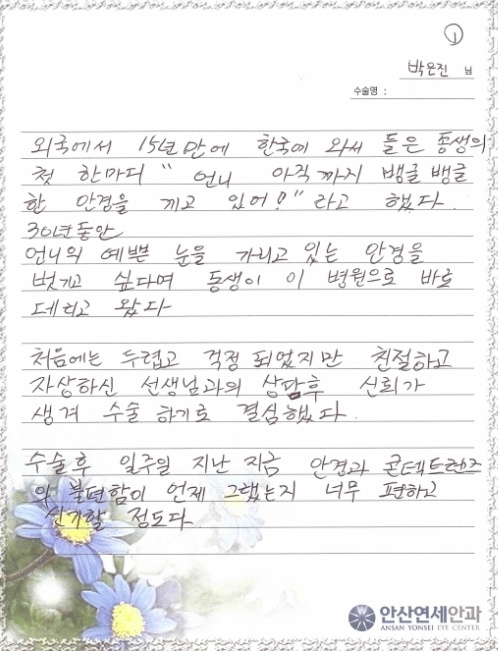 ①
박은진 님
수술명 :
외국에서 15년만에 한국에 와서 들은 동생의
첫 한마디 " 언니 아직까지 뱅글뱅글
한 안경을 끼고 있어?" 라고 했다.
30년동안
언니의 예쁜 눈을 가리고 있는 안경을
벗기고 싶다며 동생이 이 병원으로 바로
데리고 왔다
처음에는 두렵고 걱정 되었지만 친절하고
자상하신 선생님과의 상담후 신뢰가
생겨 수술 하기로 결심했다.
수술후 일주일 지난 지금 안경과 콘텍트렌즈
의 불편함이 언제 그랬는지 너무 편하고
신기할 정도다.
안산연세안과
ANSAN YONSEI EYE CENTER